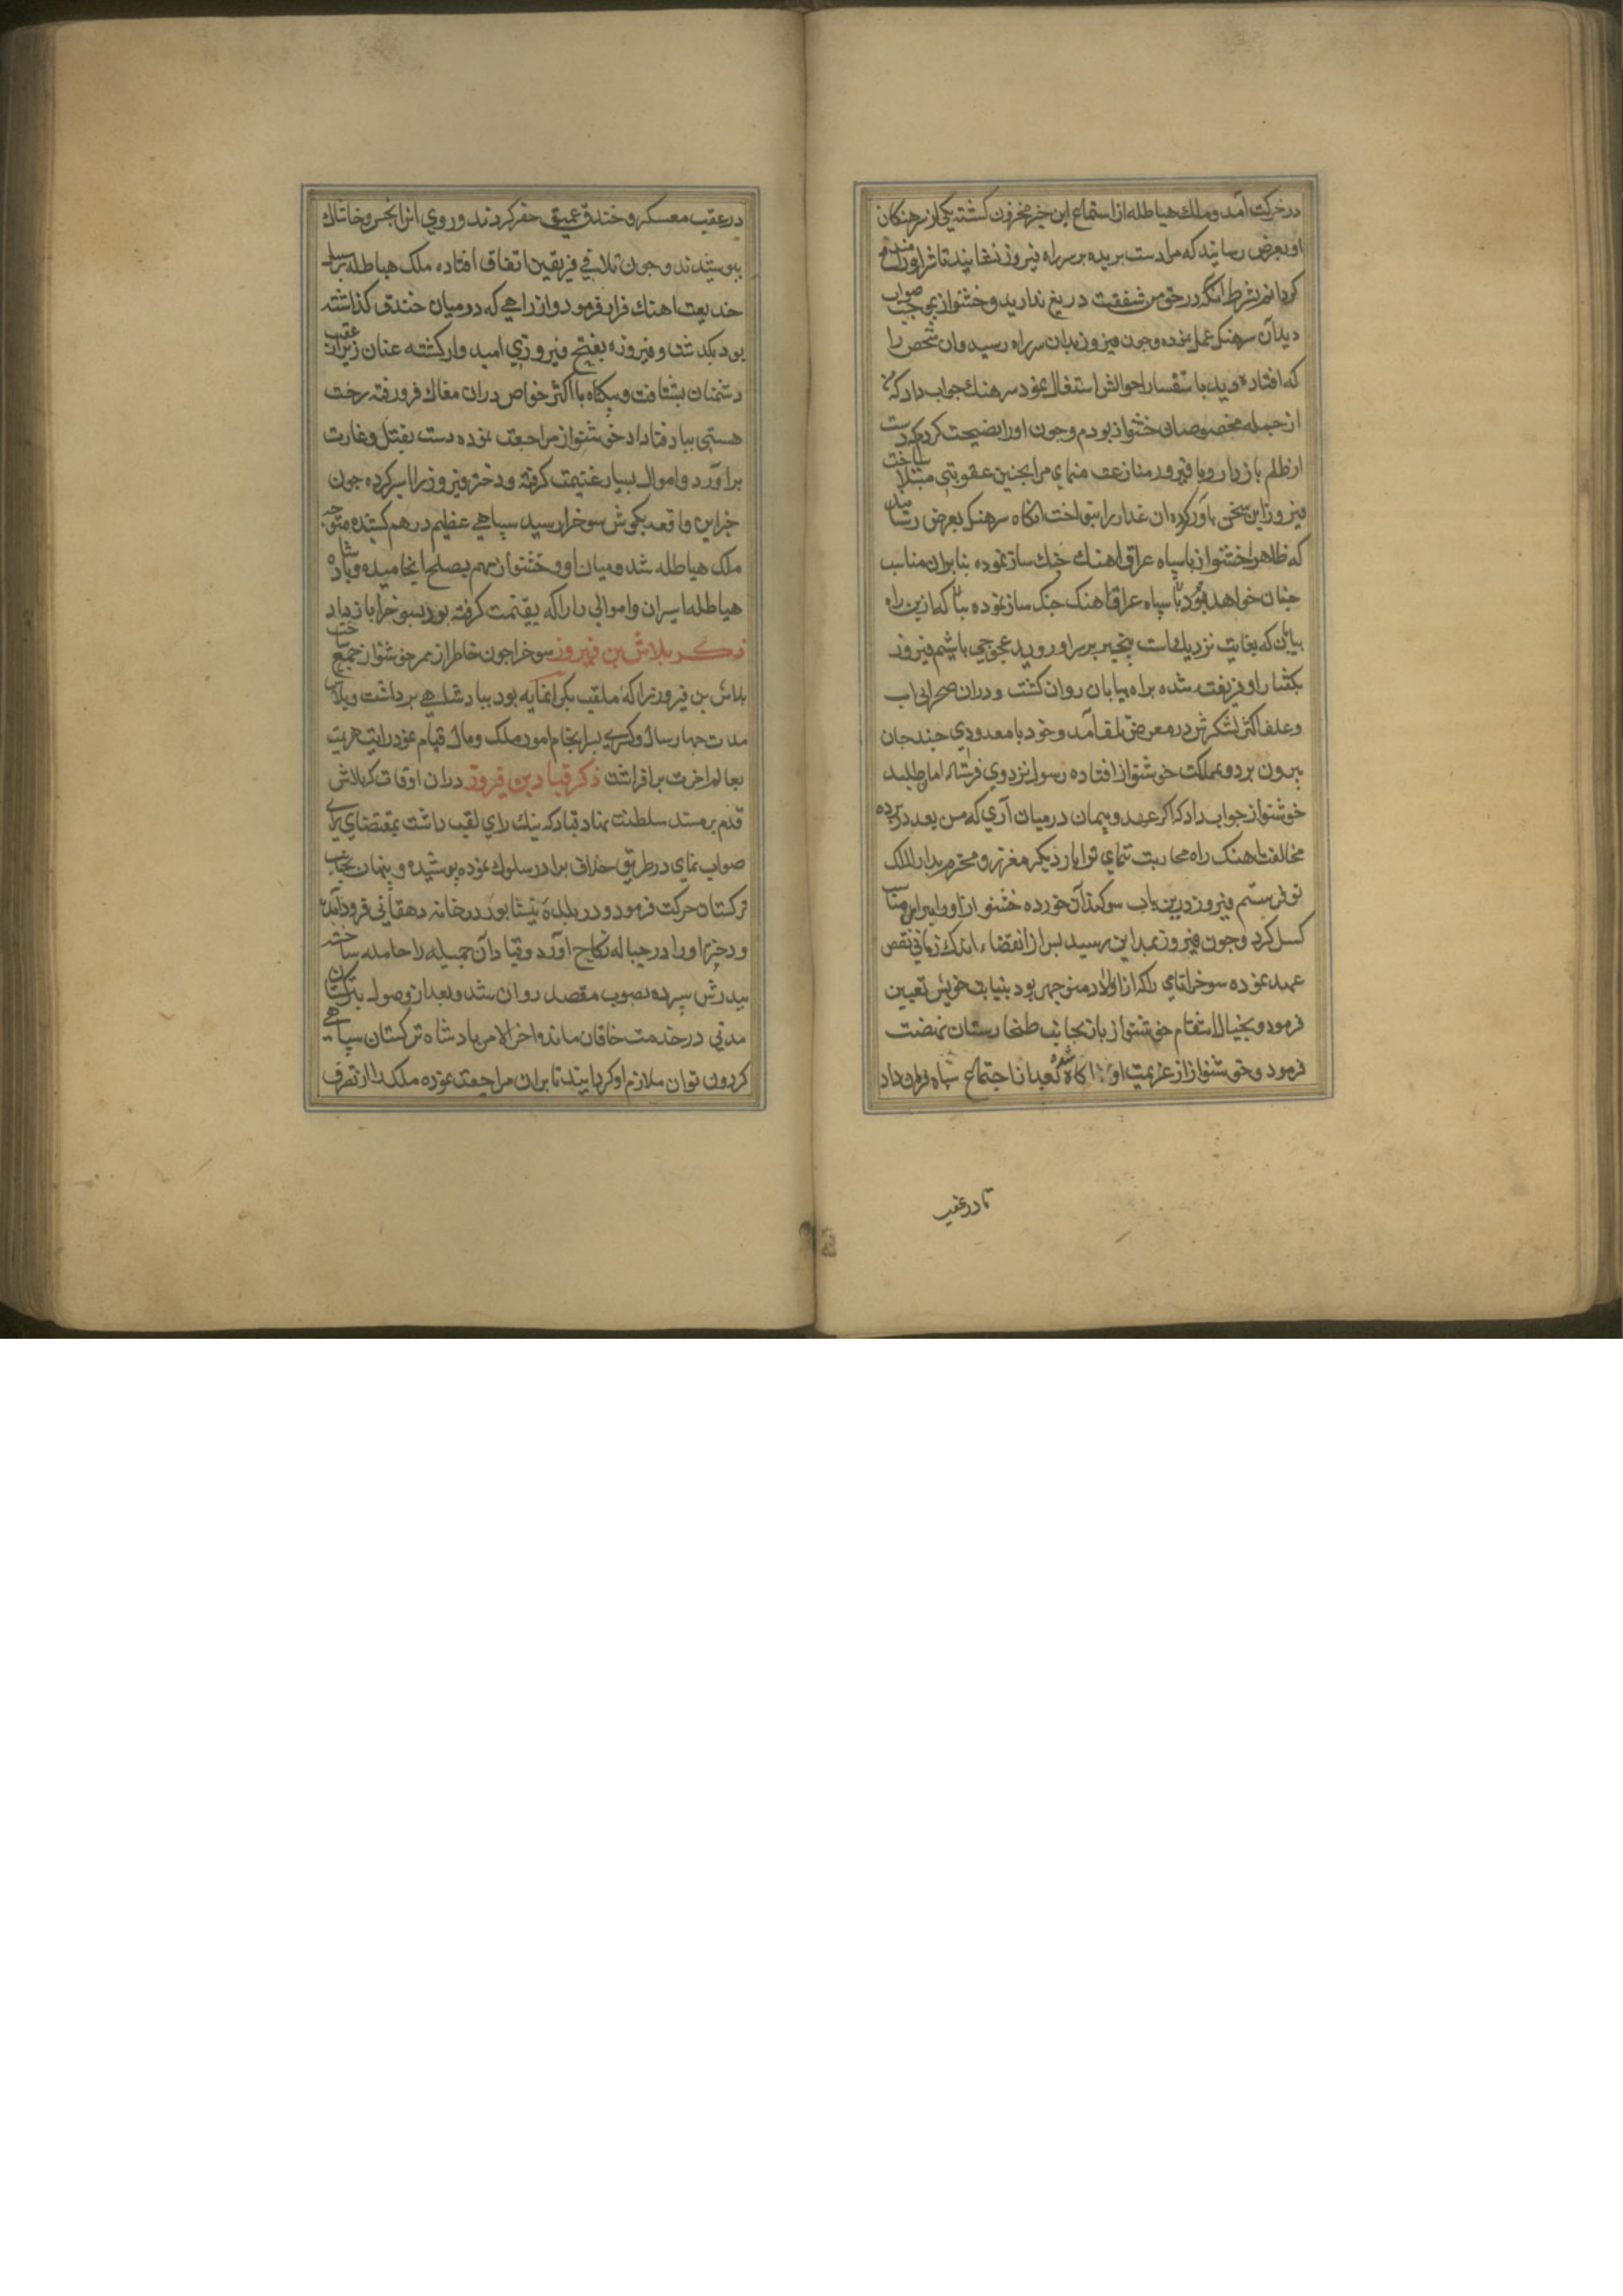 در حرکت آمد و ملک هیاطله از استماع این خبر محزون کشته یکی از سرهنکان
او بعرض رسانید که مرا دست بریده بر سر راه فیروز بیندازند تا شر او را مندفع
کردانم بشرط آنکه در حق من شفقت دریغ ندارید و خشنواز بموجب صواب
دید آن سرهنک عمل نموده و جون فیروز بدان سر راه رسید و ان شخص را
که افتاده دید باستفسار احوالش اشتغال نمود سرهنک جواب داد که من
از جمله مخصوصان خشنواز بودم و جون او را نصیحت کردم که دست
از ظلم باز دار و با فیروز منازعت منمای مرا بجنین عقوبتی مبتلا ساخت
فیروز این سخن باور کرده ان غدار را بنواخت انکاه سرهنک بعرض رسانید
که ظاهرا خشنواز با سپاه عراق اهنک جنک ساز نموده بنابران مناسب
جنان خواهد بود با سپاه عراق اهنک جنک ساز نموده که ازین راه
بیابان که بغایت نزدیک است بیخبر بر سر او رویم فیروز
بکفتار او فریفته شده براه بیابان روان کشت و دران صحرای بی اب
و علف اکثر لشکرش در معرض تلف آمد و خود با معدودی جند جان
بیرون برد و بمملکت خوشنواز افتاده رسول نزد وی فرستاد امان طلبید
خوشنواز جواب داد که اکر عهد و پیمان درمیان آری که من بعد در پرده
مخالفت اهنک راه محاربت ننمای ترا بار دیکر معزز و محترم بدار الملک
تو فرستم فیروز درین باب سوکند آن خورده خشنواز او را بایران مناسب
کسیل کرد و جون فیروز بمداین رسید بس از انقضاء اندک زمانی نقض
عهد نموده سوخرا نامی را که از اولاد منوجهر بود بنیابت خویش تعیین
فرمود و بخیال انتقام خوشنواز باز بجانب طخارستان نهضت
فرمود و خوشنواز از عزیمت او آکاه شده بعد از اجتماع سپاه فرمان داد
تا در عقب
در عقب معسکر خندق عمیق حفر کردند و روی انرا بخس و خاشاک
بپوشیدند و جون تلاقی فریقین اتفاق افتاده ملک هیاطله بر سبیل
خدیعت اهنک فرار فرمود و از راهی که درمیان خندق کذاشته
بود بکذشت و فیروز بفتح و فیروزی امیدوار کشته عنان زنان از عقب
دشمنان بشتافت و بیکاه با اکثر خواص دران مغاک فرو رفته رخت
هستی بباد فنا داد خوشنواز مراجعت نموده دست بقتل و غارت
برآورد و اموال بسیار غنیمت کرفته و دختر فیروز را اسیر کرده جون
خبر این واقعه بکوش سوخرا رسید سپاهی عظیم درهم کشیده متوجه
ملک هیاطله شد و میان او و خشنواز مهم بصلح انجامیده و پادشاه
هیاطله اسیران و اموالی را که بغنیمت کرفته بود بسوخرا باز داد
ذکر بلاش بن فیروز سوخرا جون خاطر از ممر خوشنواز جمع ساخت
بلاش بن فیروز را که ملقب بکرانمایه بود ببادشاهی برداشت و بلاش
مدت جهار سال و کسری بسرانجام امور ملک و مال قیام نمود رایت عزیمت
بعالم اخرت برافراشت ذکر قباد بن فیروز دران اوقات که بلاش
قدم بر مسند سلطنت نهاد قباد که نیک رای لقب داشت بمقتضای رای
صواب نمای در طریق خلاف برادر سلوک نموده پوشیده و پنهان بجانب
ترکستان حرکت فرمود و در بلده نیشابور در خانه دهقانی فرود آمد
و دختر او را در حباله نکاح آورد و قباد آن جمیله را حامله ساخته
بپدرش سپرده بصوب مقصد روان شد و بعد از وصول بترکستان
مدتی در خدمت خاقان ماند و اخر الامر پادشاه ترکستان سپاهی
کردون توان ملازم او کردانید تا بایران مراجعت نموده ملک را از تصرف